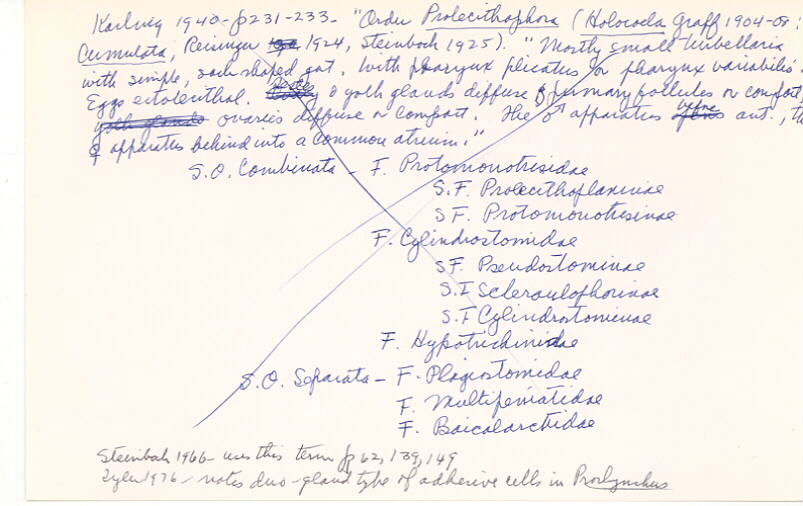 Karling 1940-p231-233. "Order Prolecithophora (Holocoela Graff 1904-08;
Cumulata, Reisinger 1924, Steinbock 1925). "Mostly small turbellaria
with simple, sack shaped gut. With pharynx plicatus or pharynx variabilis.
Eggs ectolecithal. & yolk glands diffuse & follicles or compact,
yolk glands ovaries diffuse or compact. The ♂ apparatus opens ant., the
♀ apparatus behind into a common atrium."
S.O. Combinata - F. Protomonotresidae
S.F. Prolecithoplaninae
SF. Protomonotresinae
F. Cylindrostomidae
SF. Pseudostominae
S.F Scleraulophorinae
S.F Cylindrostominae
F. Hypotrichinidae
S.O. Separata - F. Plagiostomidae
F. Multipeniatidae
F. Baicalarctidae
Steinbock 1966 - uses this term p 62, 139, 149
Tyler 1976 - notes duo-gland type of adhesive cells in Prorhynchus